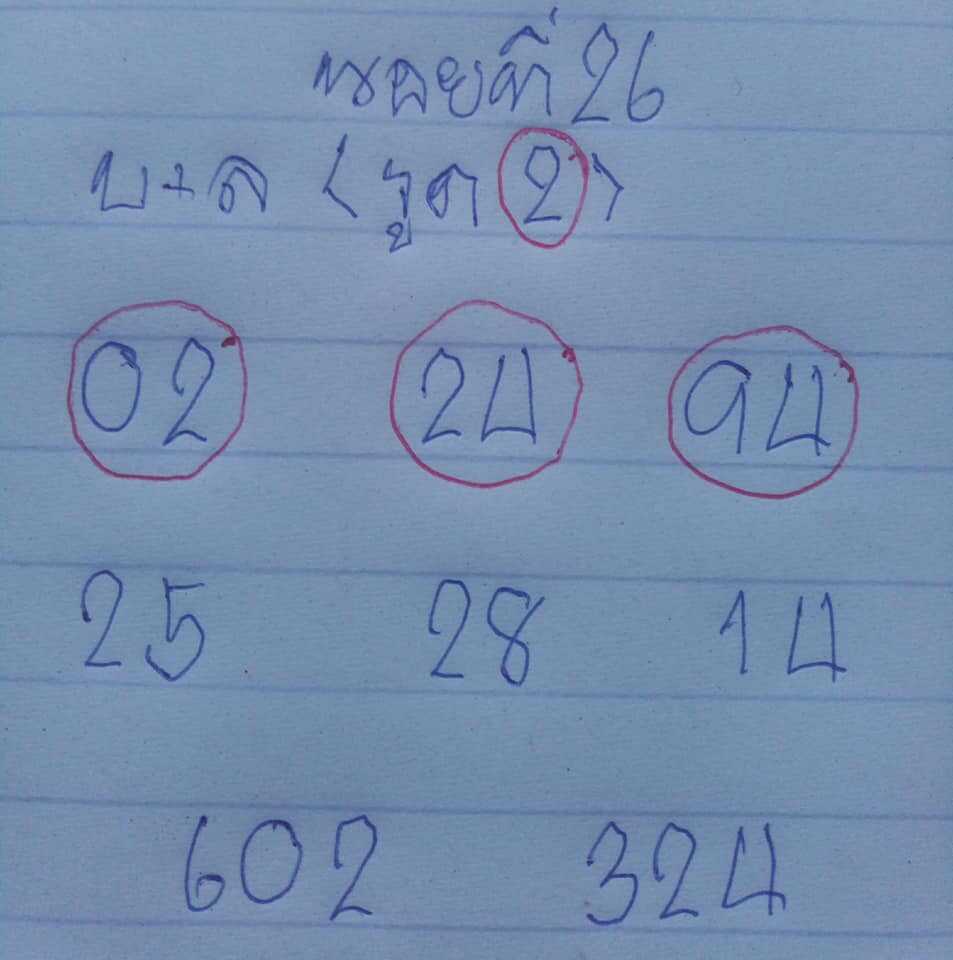 หอยที่ 26
บ+ล (รูด 2)
02 24 94
25 28 14
602 324